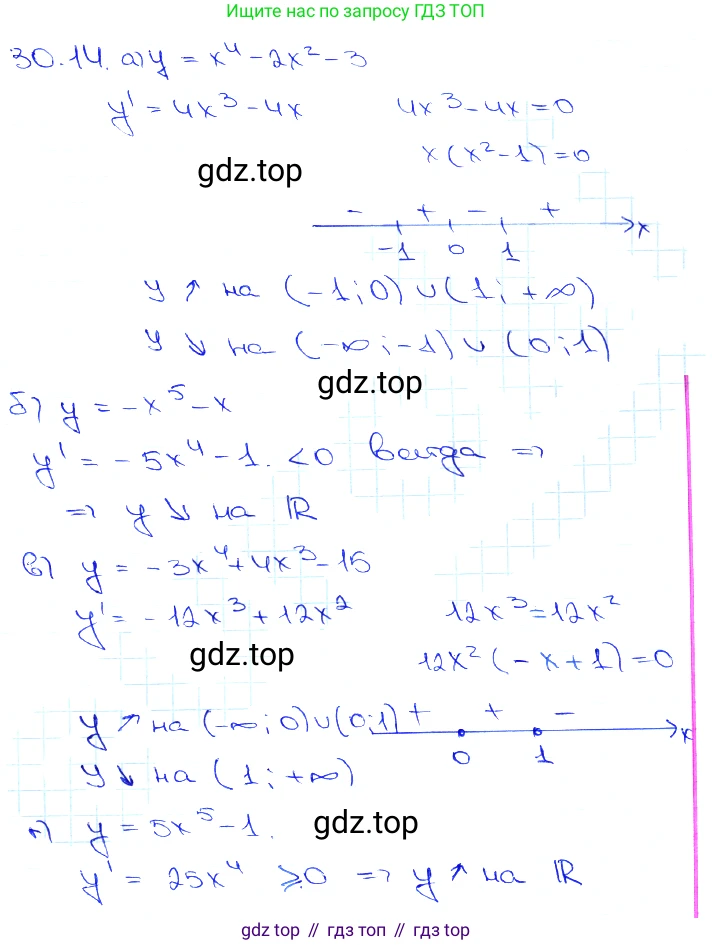 Ищите нас по запросу ГДЗ ТОП
30.14. а) y = x⁴ - 2x² - 3
y' = 4x³ - 4x 4x³ - 4x = 0
x(x² - 1) = 0
gdz.top
- + - + x
-1 0 1
y ↗ на (-1; 0) ∪ (1; +∞)
y ↘ на (-∞; -1) ∪ (0; 1)
gdz.top
б) y = -x⁵ - x
y' = -5x⁴ - 1. < 0 всегда =>
=> y ↘ на ℝ
в) y = -3x⁴ + 4x³ - 15
y' = -12x³ + 12x² 12x³ = 12x²
gdz.top
12x² (-x + 1) = 0
y ↗ на (-∞; 0) ∪ (0; 1) + + - x
0 1
y ↘ на (1; +∞)
г) y = 5x⁵ - 1.
gdz.top
y' = 25x⁴ ⩾ 0 => y ↗ на ℝ
gdz top // гдз топ // gdz top // гдз top